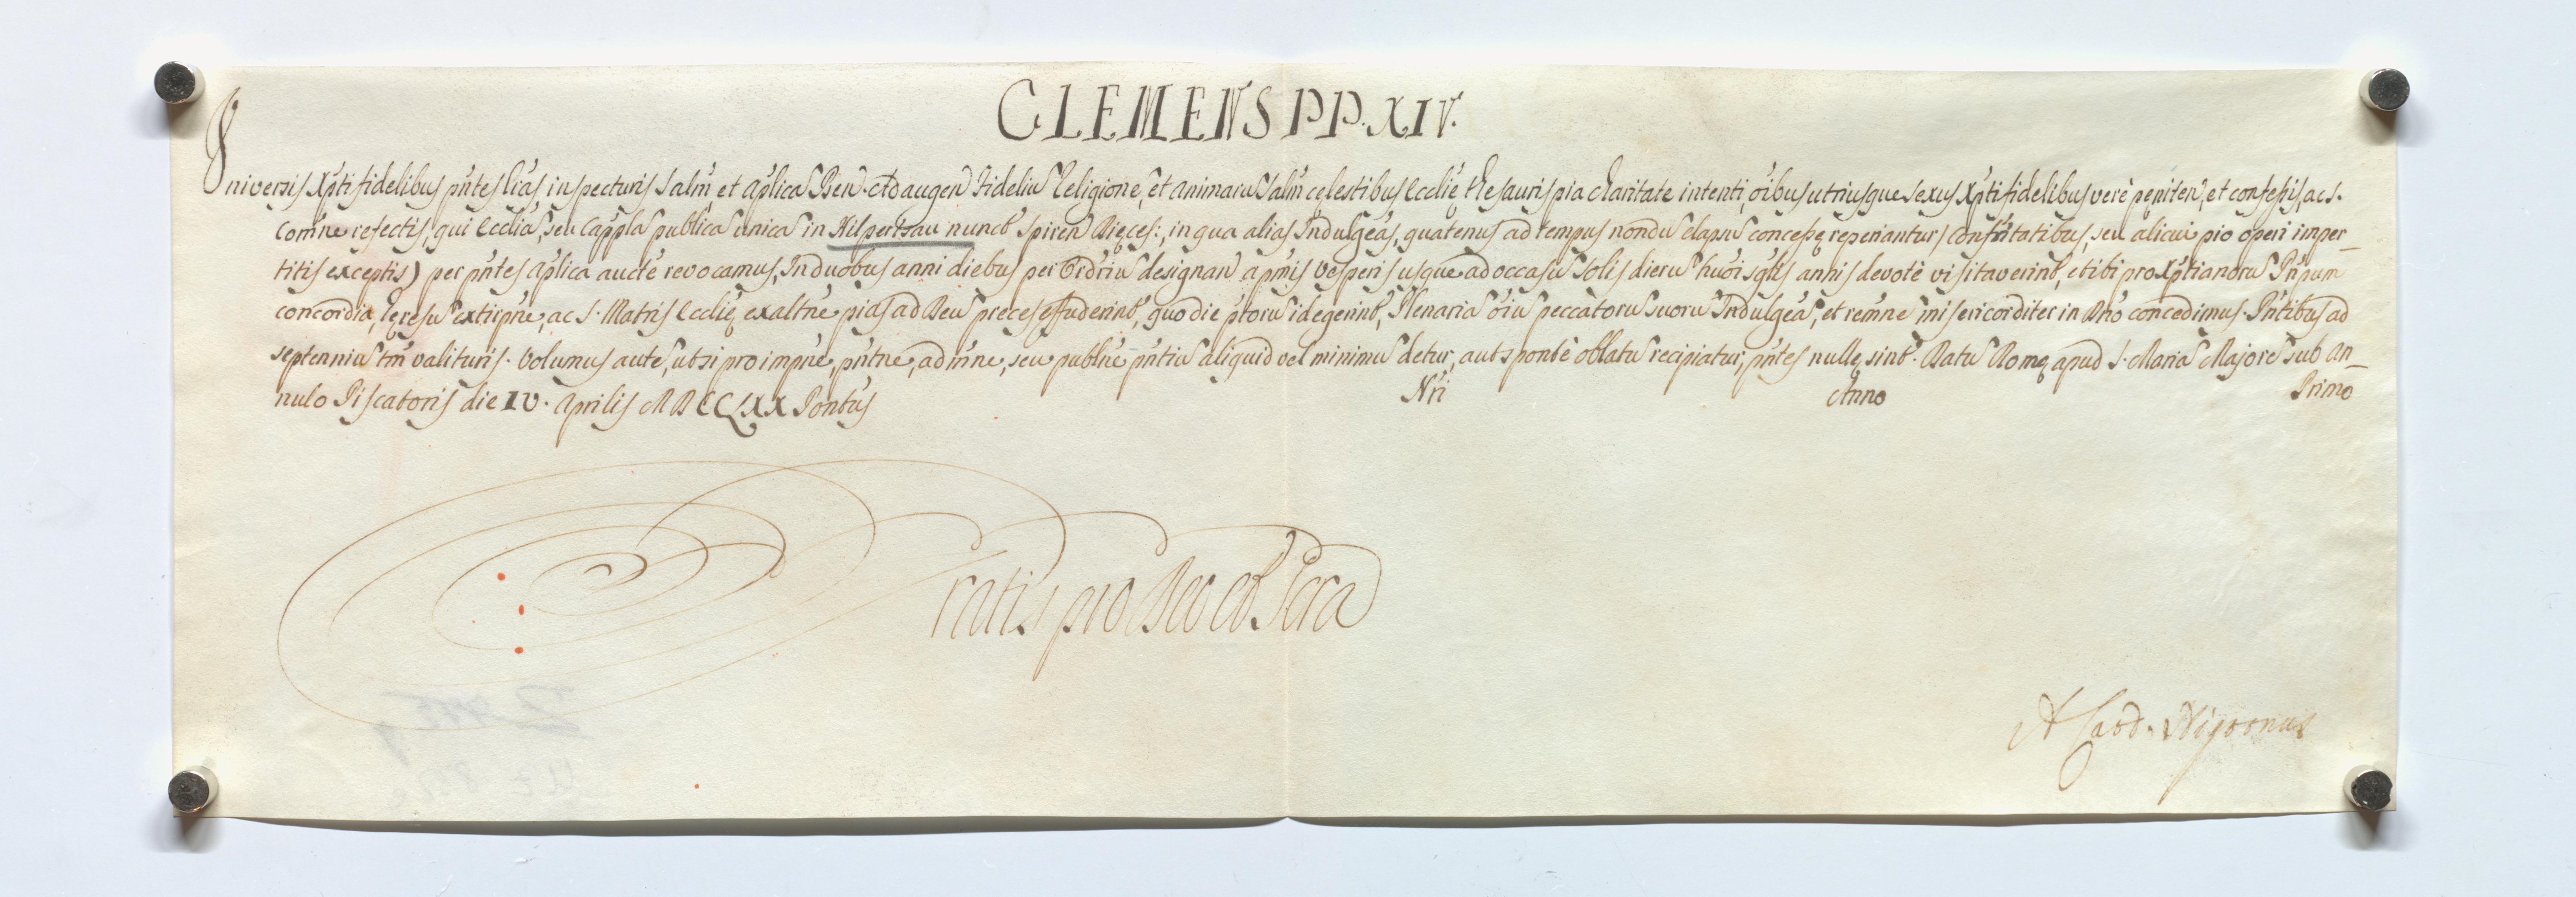 CLEMENS PP. XIV.
Universis Xpti fidelibus pntes lras inspecturis Salm, et aplica Ben. Ad augen Fideliu Religione, et animaru Salm celestibus Ecclie thesauris pia charitate intenti, oibus utriusque sexus Xpti fidelibus verè peniten, et confessis, ac S.
Comne refectis, qui Ecclia, seu Cappla publica unica in Hilpertsau nunct Spiren Dieces:, in qua alias Indulgeas, quatenus ad tempus nondu elapsu concesse reperiantur (Confrtatibus, seu alicui pio operi imper-
titis exceptis) per pntes aplica aucte revocamus, In duobus anni diebus per Ordriu designan a pmis vesperis usque ad occasu Solis dieru huoi sglis annis devotè visitaverint, et ibi pro Xptianoru Prpum
concordia, heresu extirpne, ac S. Matris Ecclie exaltne pias ad Deu preces effuderint, quo die ptoru id egerint, Plenaria oiu peccatoru suoru Indulgea, et remne misericorditer in Dno concedimus. Pntibus ad
septenniu tm valituris. Volumus aute, ut si pro impne, pntne, admne, seu publne pntiu aliquid vel minimu detur, aut sponte oblatu recipiatur, pntes nulle sint. Datu Rome apud S. Maria Majore sub An-
nulo Piscatoris die IV. Aprilis MDCCLXX Pontus Nri Anno Primo
Gratis pro Deo et Scra
A Card. Nigronus